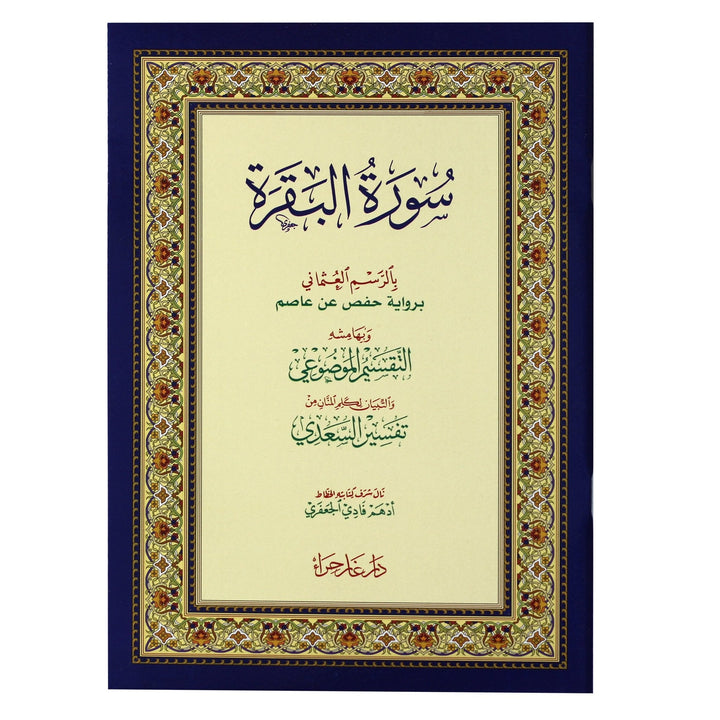 سُورَةُ الْبَقَرَة
جعفري
بِالرَّسْمِ الْعُثْمَانِي
برواية حفص عن عاصم
وَبِهَامِشِهِ
التَّقْسِيمُ الْمَوْضُوعِي
وَالتِّبْيَان لِكَلِمِ الْمَنَّانِ مِن
تَفْسِيرِ السَّعْدِي
نَالَ شَرَفَ كِتَابَتِهِ الخَطَّاط
أدهم فادي الجعفري
دار غار حراء